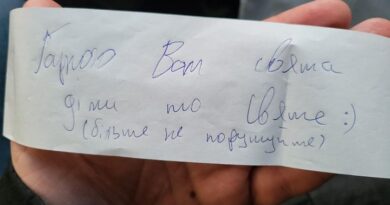 Гарного Вам свята
діти то святе :)
(більше не порушуйте)